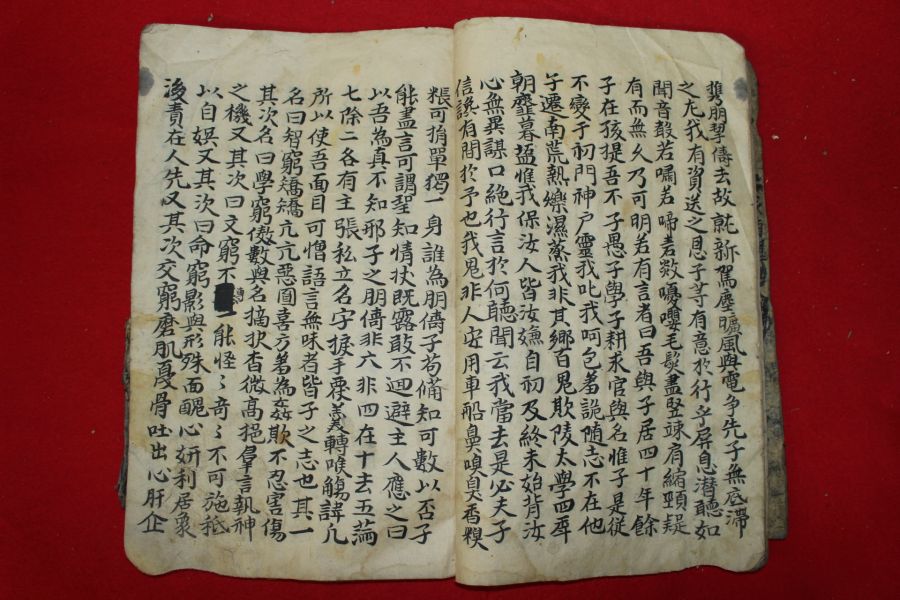 携朋挈儔去故就新駕塵彍風與電争先子無底滯
之尤我有資送之恩子等有意於行乎屏息潛聽如
聞音聲若嘯若啼砉欻嚘嚶毛髮盡竪竦肩縮頸疑
有而無久乃可明若有言者曰吾與子居四十年餘
子在孩提吾不子愚子學子耕求官與名惟子是從
不變于初門神戶靈我叱我呵包羞詭随志不在他
子遷南荒熱爍濕蒸我非其鄉百鬼欺陵太學四年
朝虀暮塩惟我保汝人皆汝嫌自初及終未始背汝
心無異謀口絶行言於何聽聞云我當去是必夫子
信讒有間於予也我鬼非人安用車船鼻嗅臭香糗
粻可捐單獨一身誰為朋儔子苟備知可數以否子
能盡言可謂聖知情狀既露敢不迴避主人應之曰
以吾為真不知邪子之朋儔非六非四在十去五滿
七除二各有主張私立名字捩手覆羹轉喉觸諱凡
所以使吾面目可憎語言無味者皆子之志也其一
名曰智窮矯矯亢亢惡圓喜方羞為姦欺不忍害傷
其次名曰學窮傲數與名摘抉杳微高挹羣言執神
之機又其次曰文窮不專一能怪〻奇〻不可施秪
以自娛又其次曰命窮影與形殊面醜心姸利居衆
後責在人先又其次交窮磨肌戛骨吐出心肝企